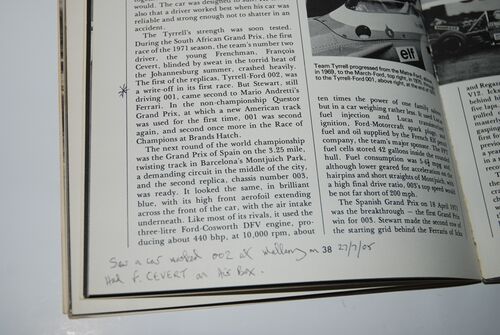 would. The car was designed to
also that a driver worked best when his car was
reliable and strong enough not to shatter in an
accident.
The Tyrrell's strength was soon tested.
During the South African Grand Prix, the first
race of the 1971 season, the team's number two
driver, the young Frenchman, François
Cevert, blinded by sweat in the torrid heat of
the Johannesburg summer, crashed heavily.
The first of the replicas, Tyrrell-Ford 002, was
a write-off in its first race. But Stewart, still
driving 001, came second to Mario Andretti's
Ferrari. In the non-championship Questor
Grand Prix, at which a new American track
was used for the first time, 001 was second
again, and second once more in the Race of
Champions at Brands Hatch.
The next round of the world championship
was the Grand Prix of Spain on the 3.25 mile,
twisting track in Barcelona's Montjuich Park,
a demanding circuit in the middle of the city,
and the second replica, chassis number 003,
was ready. It looked the same, in brilliant
blue, with its high front aerofoil extending
across the front of the car, with the air intake
underneath. Like most of its rivals, it used the
three-litre Ford-Cosworth DFV engine, pro-
ducing about 440 bhp, at 10,000 rpm, about
elf
Team Tyrrell progressed from the Matra-Ford,
in 1969, to the March-Ford, top right, in 1970,
to the Tyrrell-Ford 001, above right, at the end of
ten times the power of one family
but in a car weighing rather less. It used
fuel injection and Lucas
ignition, Ford-Motorcraft spark plugs,
fuel and oil supplied by the French Elf
company, the team's major sponsor. The
fuel cells stored 42 gallons inside the
hull. Fuel consumption was 5-6 mpg and
although lower geared for acceleration on the
hairpins and short straights of Montjuich, with
a high final drive ratio, 003's top speed was
not far short of 200 mph.
The Spanish Grand Prix on 18 April 1971
was the breakthrough – the first Grand Prix
win for 003. Stewart made the second row of
the starting grid behind the Ferraris of Ickx
and Regaz
V12. Ickx
behind
five lap
38
Saw a car marked 002 at Mallory on 27/7/08
Had F. CEVERT on Air Box.